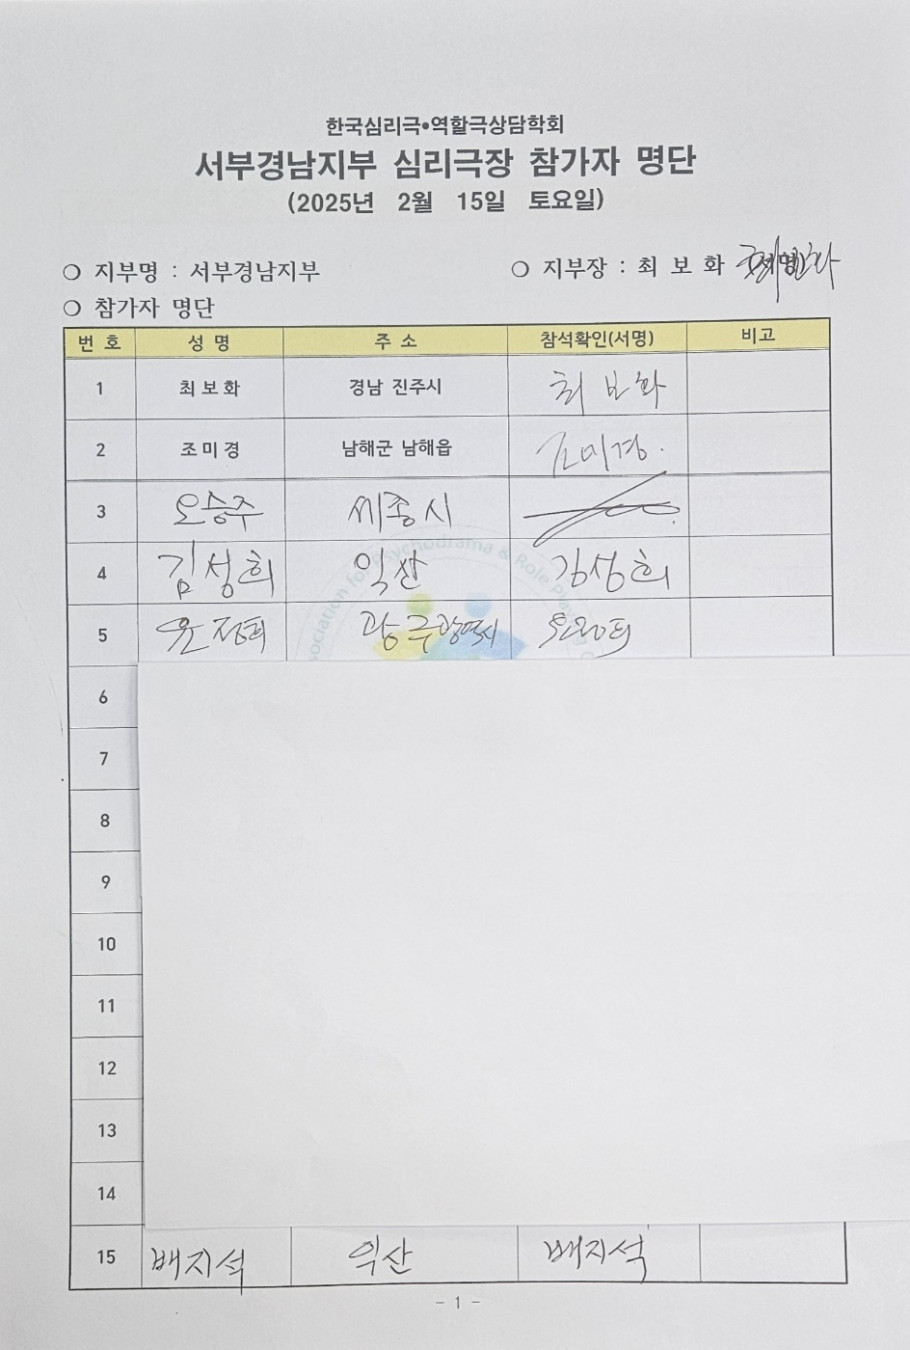 한국심리극•역할극상담학회
서부경남지부 심리극장 참가자 명단
(2025년 2월 15일 토요일)
❍ 지부명 : 서부경남지부 ❍ 지부장 : 최 보 화
❍ 참가자 명단
번 호 성 명 주 소 참석확인(서명) 비고
1 최보화 경남 진주시 최 보 화
2 조미경 남해군 남해읍 조미경.
3 오승주 세종시
4 김성희 익산 김성희
5 광주광역시
6
7
8
9
10
11
12
13
14
15 배지석 익산 배지석
- 1 -